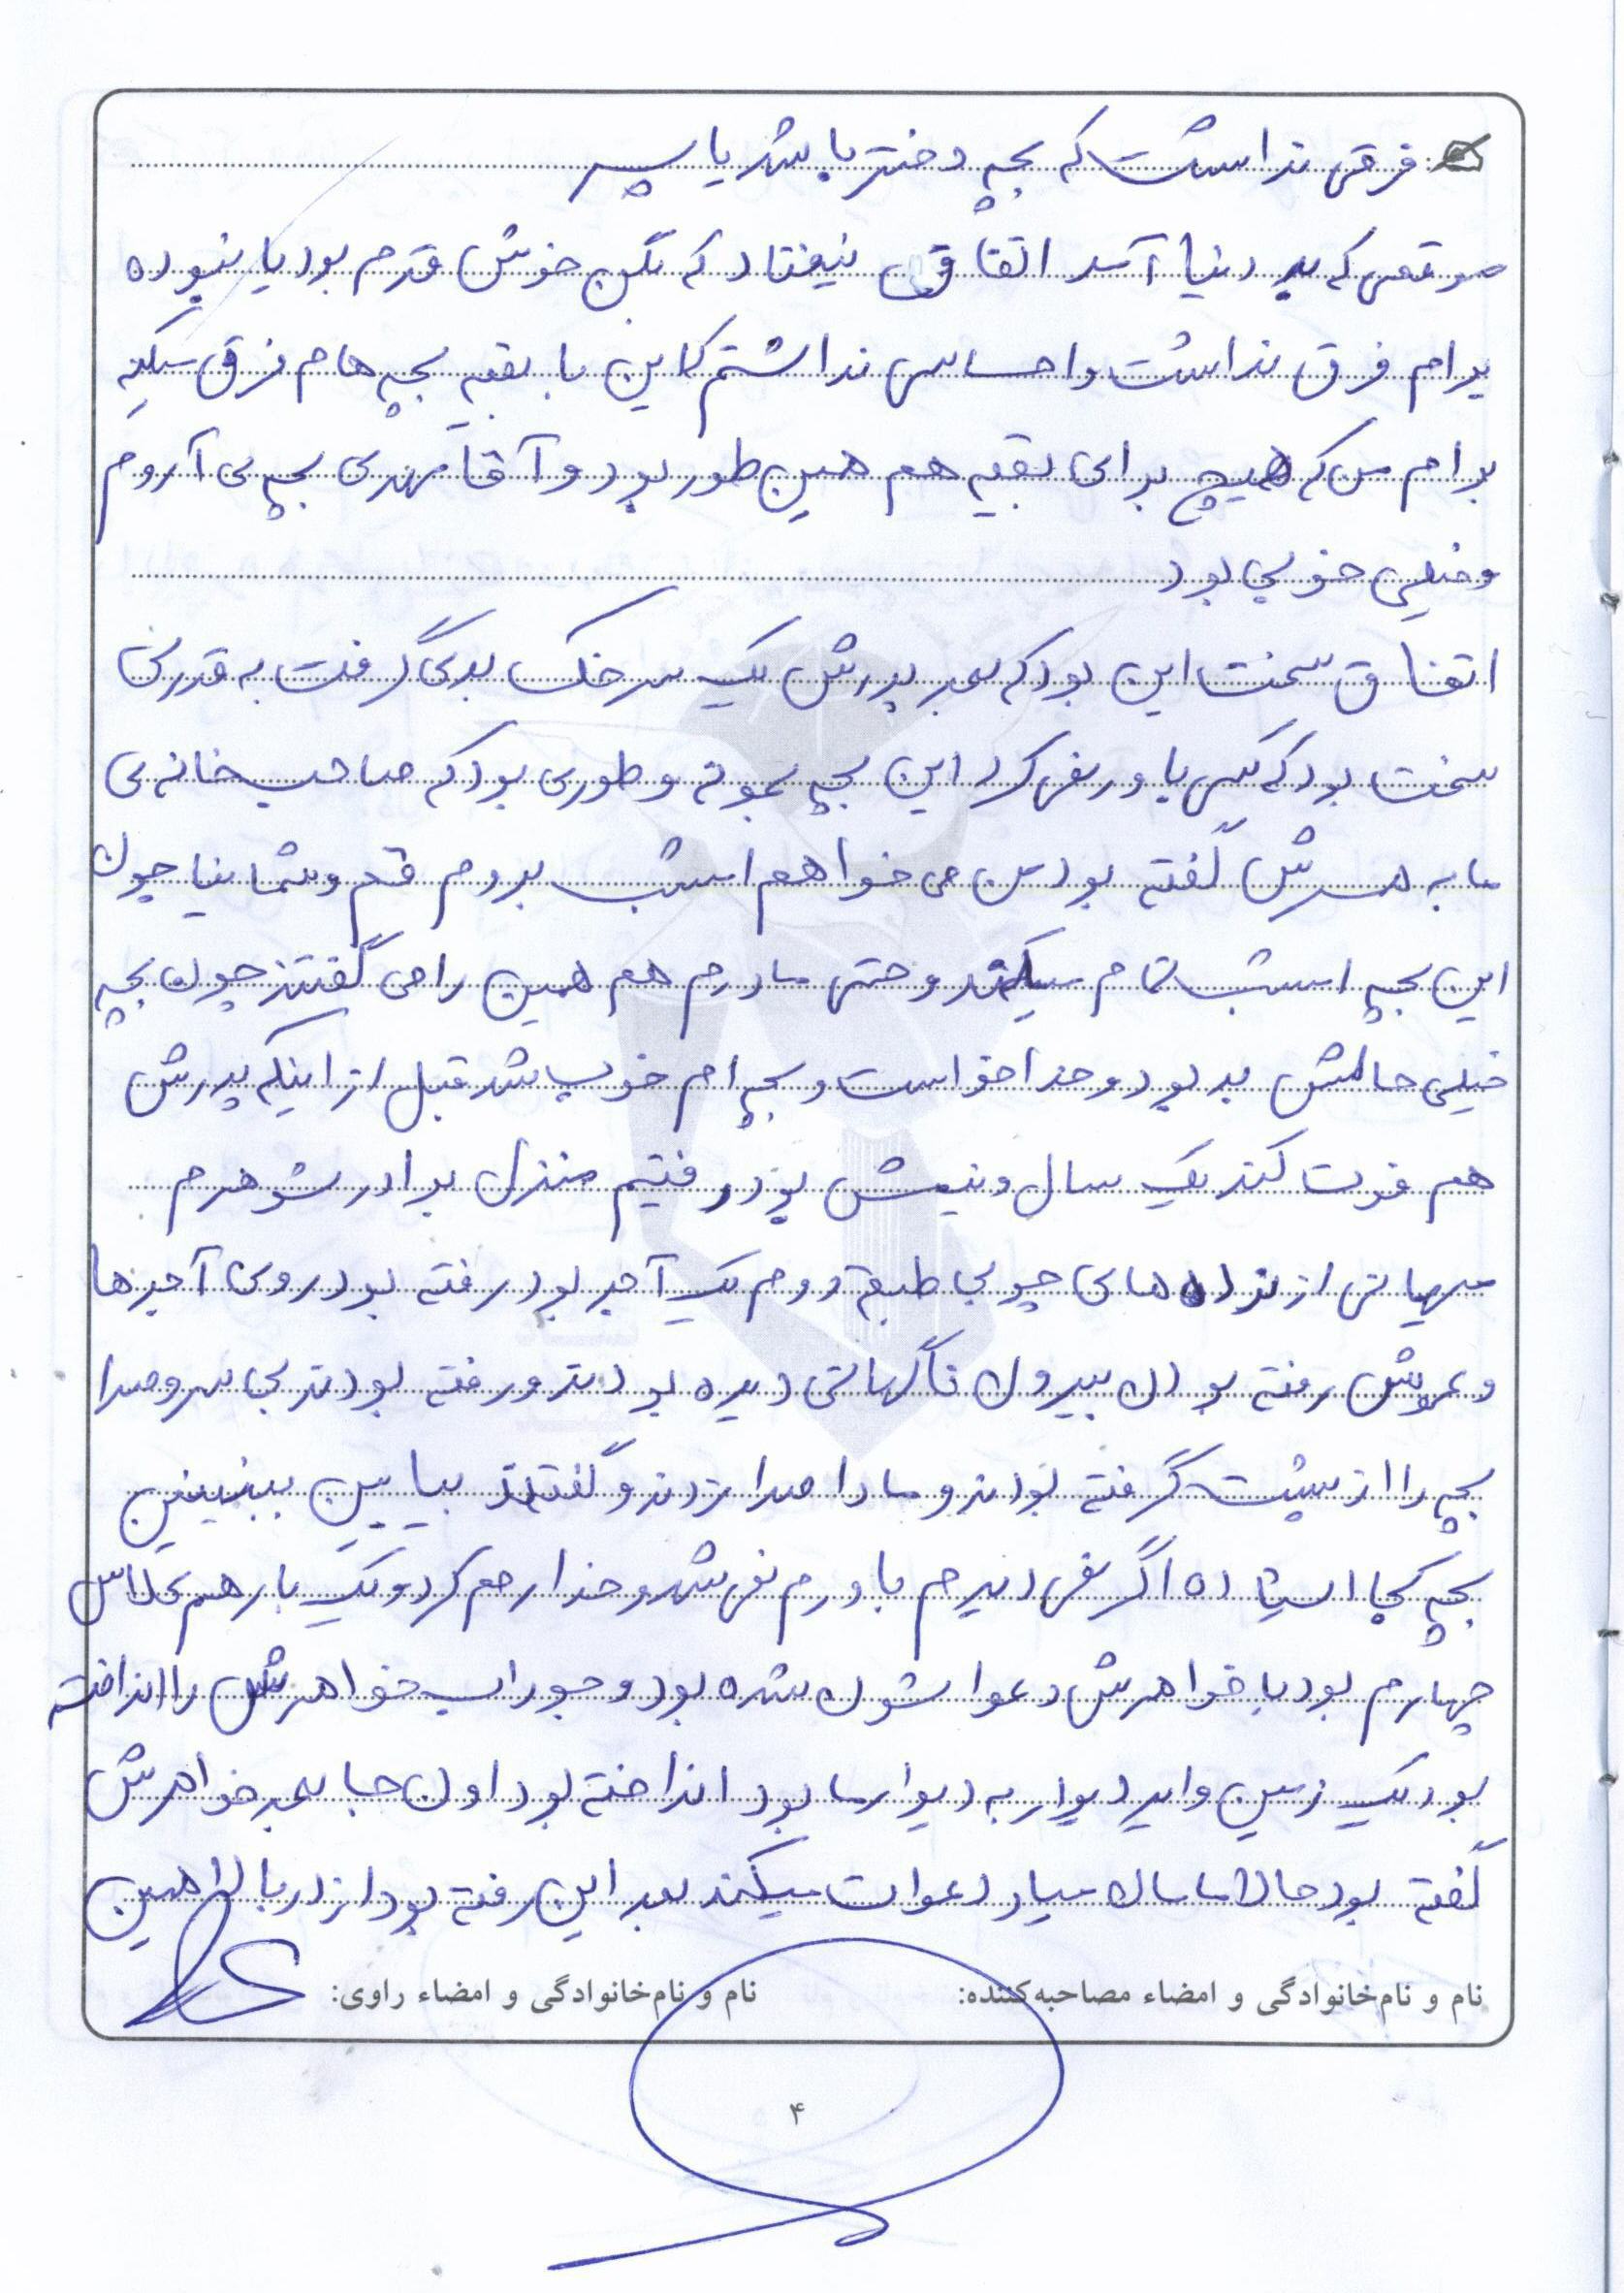 فرقی نداشت که بچه دختر باشد یا پسر
موقعی که به دنیا آمد اتفاقی نیفتاد که بگن خوش قدم بود یا نبوده
برام فرق نداشت و احساس نداشتم که این با بقیه بچه هام فرق میکنه
برام من که هیچ برای بقیه هم همین طور بود و آقا مهدی بچه ی آروم
و خیلی خوبی بود
اتفاق سخت این بود که بعد پدرش یک سرخک بدی گرفت به قدری
سخت بود که کسی باور نمی کرد این بچه بمونه و طوری بود که صاحب خانه ی
ما به همسرش گفته بود من می خواهم امشب بروم قم و شما بیا چون
این بچه امشب تمام میکند و حتی مادرم هم همین را می گفتند چون بچه
خیلی حالش بد بود و خدا خواست و بچه ام خوب شد قبل از اینکه پدرش
هم فوت کند یک سال و نیمش بود رفتیم منزل برادر شوهرم
مهمانی از نرده های چوبی طبقه دوم یک آجر بود رفته بود روی آجرها
و عموش رفته بودن بیرون ناگهانی دیده بودند و رفته بودند بی سر و صدا
بچه را از پشت گرفته بودند و ما را صدا زدند و گفتند بیایین ببینین
بچه کجا ایستاده اگر نمی دیدم باورم نمی شد و خدا رحم کرد و یک بار هم کلاس
چهارم بود با خواهرش دعواشون شده بود و جوراب خواهرش را انداخته
بود یک زمین وایر دیوار به دیوار ما بود انداخته بود اون جا بعد خواهرش
گفته بود حالا مامان میاد دعوات میکند بعد این رفته بود از در بالا همین
نام و نام‌خانوادگی و امضاء مصاحبه‌کننده: نام و نام‌خانوادگی و امضاء راوی:
۴